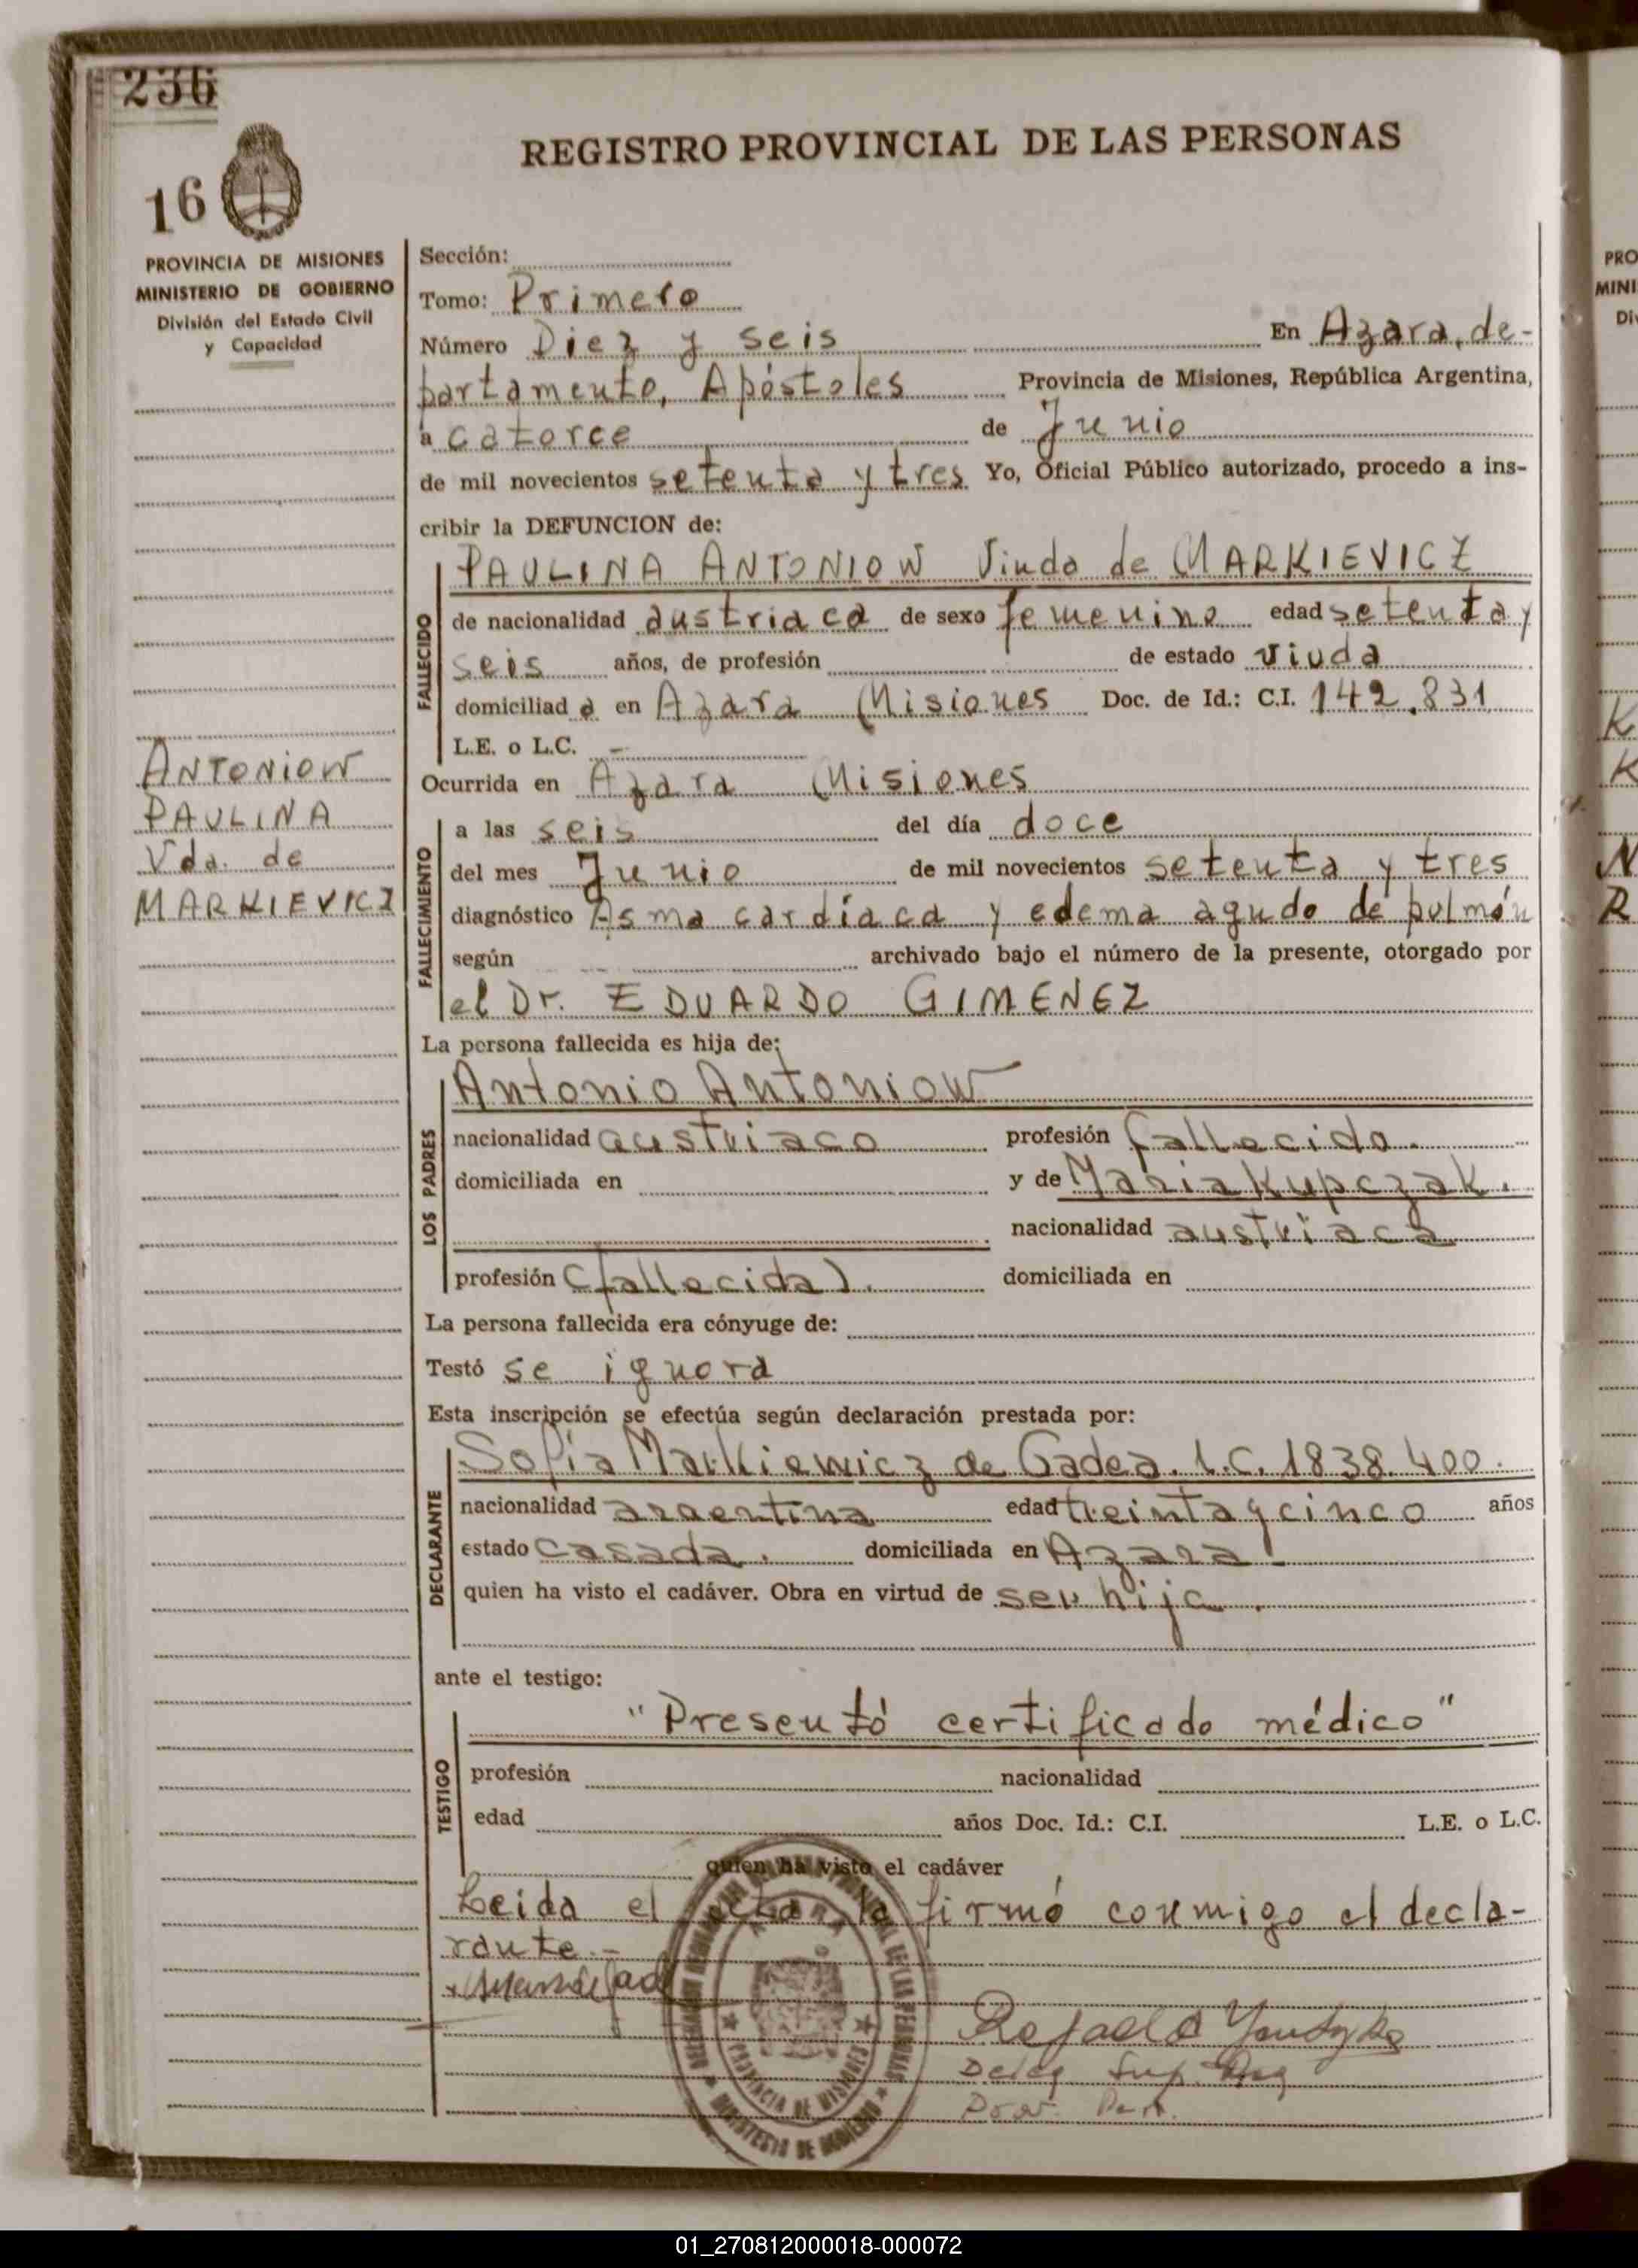 236
16
REGISTRO PROVINCIAL DE LAS PERSONAS
PROVINCIA DE MISIONES
MINISTERIO DE GOBIERNO
División del Estado Civil
y Capacidad
ANTONIOW
PAULINA
Vda. de
MARKIEVICZ
Sección:
Tomo: Primero
Número Diez y seis En Azara, de-
partamento, Apóstoles Provincia de Misiones, República Argentina,
a catorce de Junio
de mil novecientos setenta y tres Yo, Oficial Público autorizado, procedo a ins-
cribir la DEFUNCION de:
FALLECIDO
PAULINA ANTONIOW Viuda de MARKIEVICZ
de nacionalidad austriaca de sexo femenino edad setenta y
seis años, de profesión de estado viuda
domiciliad a en Azara Misiones Doc. de Id.: C.I. 142.831
L.E. o L.C. -
Ocurrida en Azara Misiones
FALLECIMIENTO
a las seis del día doce
del mes Junio de mil novecientos setenta y tres
diagnóstico Asma cardíaca y edema agudo de pulmón
según archivado bajo el número de la presente, otorgado por
el Dr. EDUARDO GIMENEZ
La persona fallecida es hija de:
LOS PADRES
Antonio Antoniow
nacionalidad austriaco profesión fallecido.
domiciliada en y de Maria Kupczak.
nacionalidad austriaca
profesión (fallecida). domiciliada en
La persona fallecida era cónyuge de:
Testó se ignora
Esta inscripción se efectúa según declaración prestada por:
DECLARANTE
Sofía Markiewicz de Gadea. L.C. 1838.400.
nacionalidad argentina edad treinta y cinco años
estado casada. domiciliada en Azara.
quien ha visto el cadáver. Obra en virtud de ser hija.
ante el testigo:
TESTIGO
"Presentó certificado médico"
profesión nacionalidad
edad años Doc. Id.: C.I. L.E. o L.C.
quien ha visto el cadáver
Leida el acta, la firmó conmigo el decla-
rante.-
PROVINCIA DE MISIONES
MINISTERIO DE GOBIERNO
DE LAS PERSONAS
Rafael
Deleg
Prov. Per.
PRO
MINI
Div
K
K
N
R
01_270812000018-000072